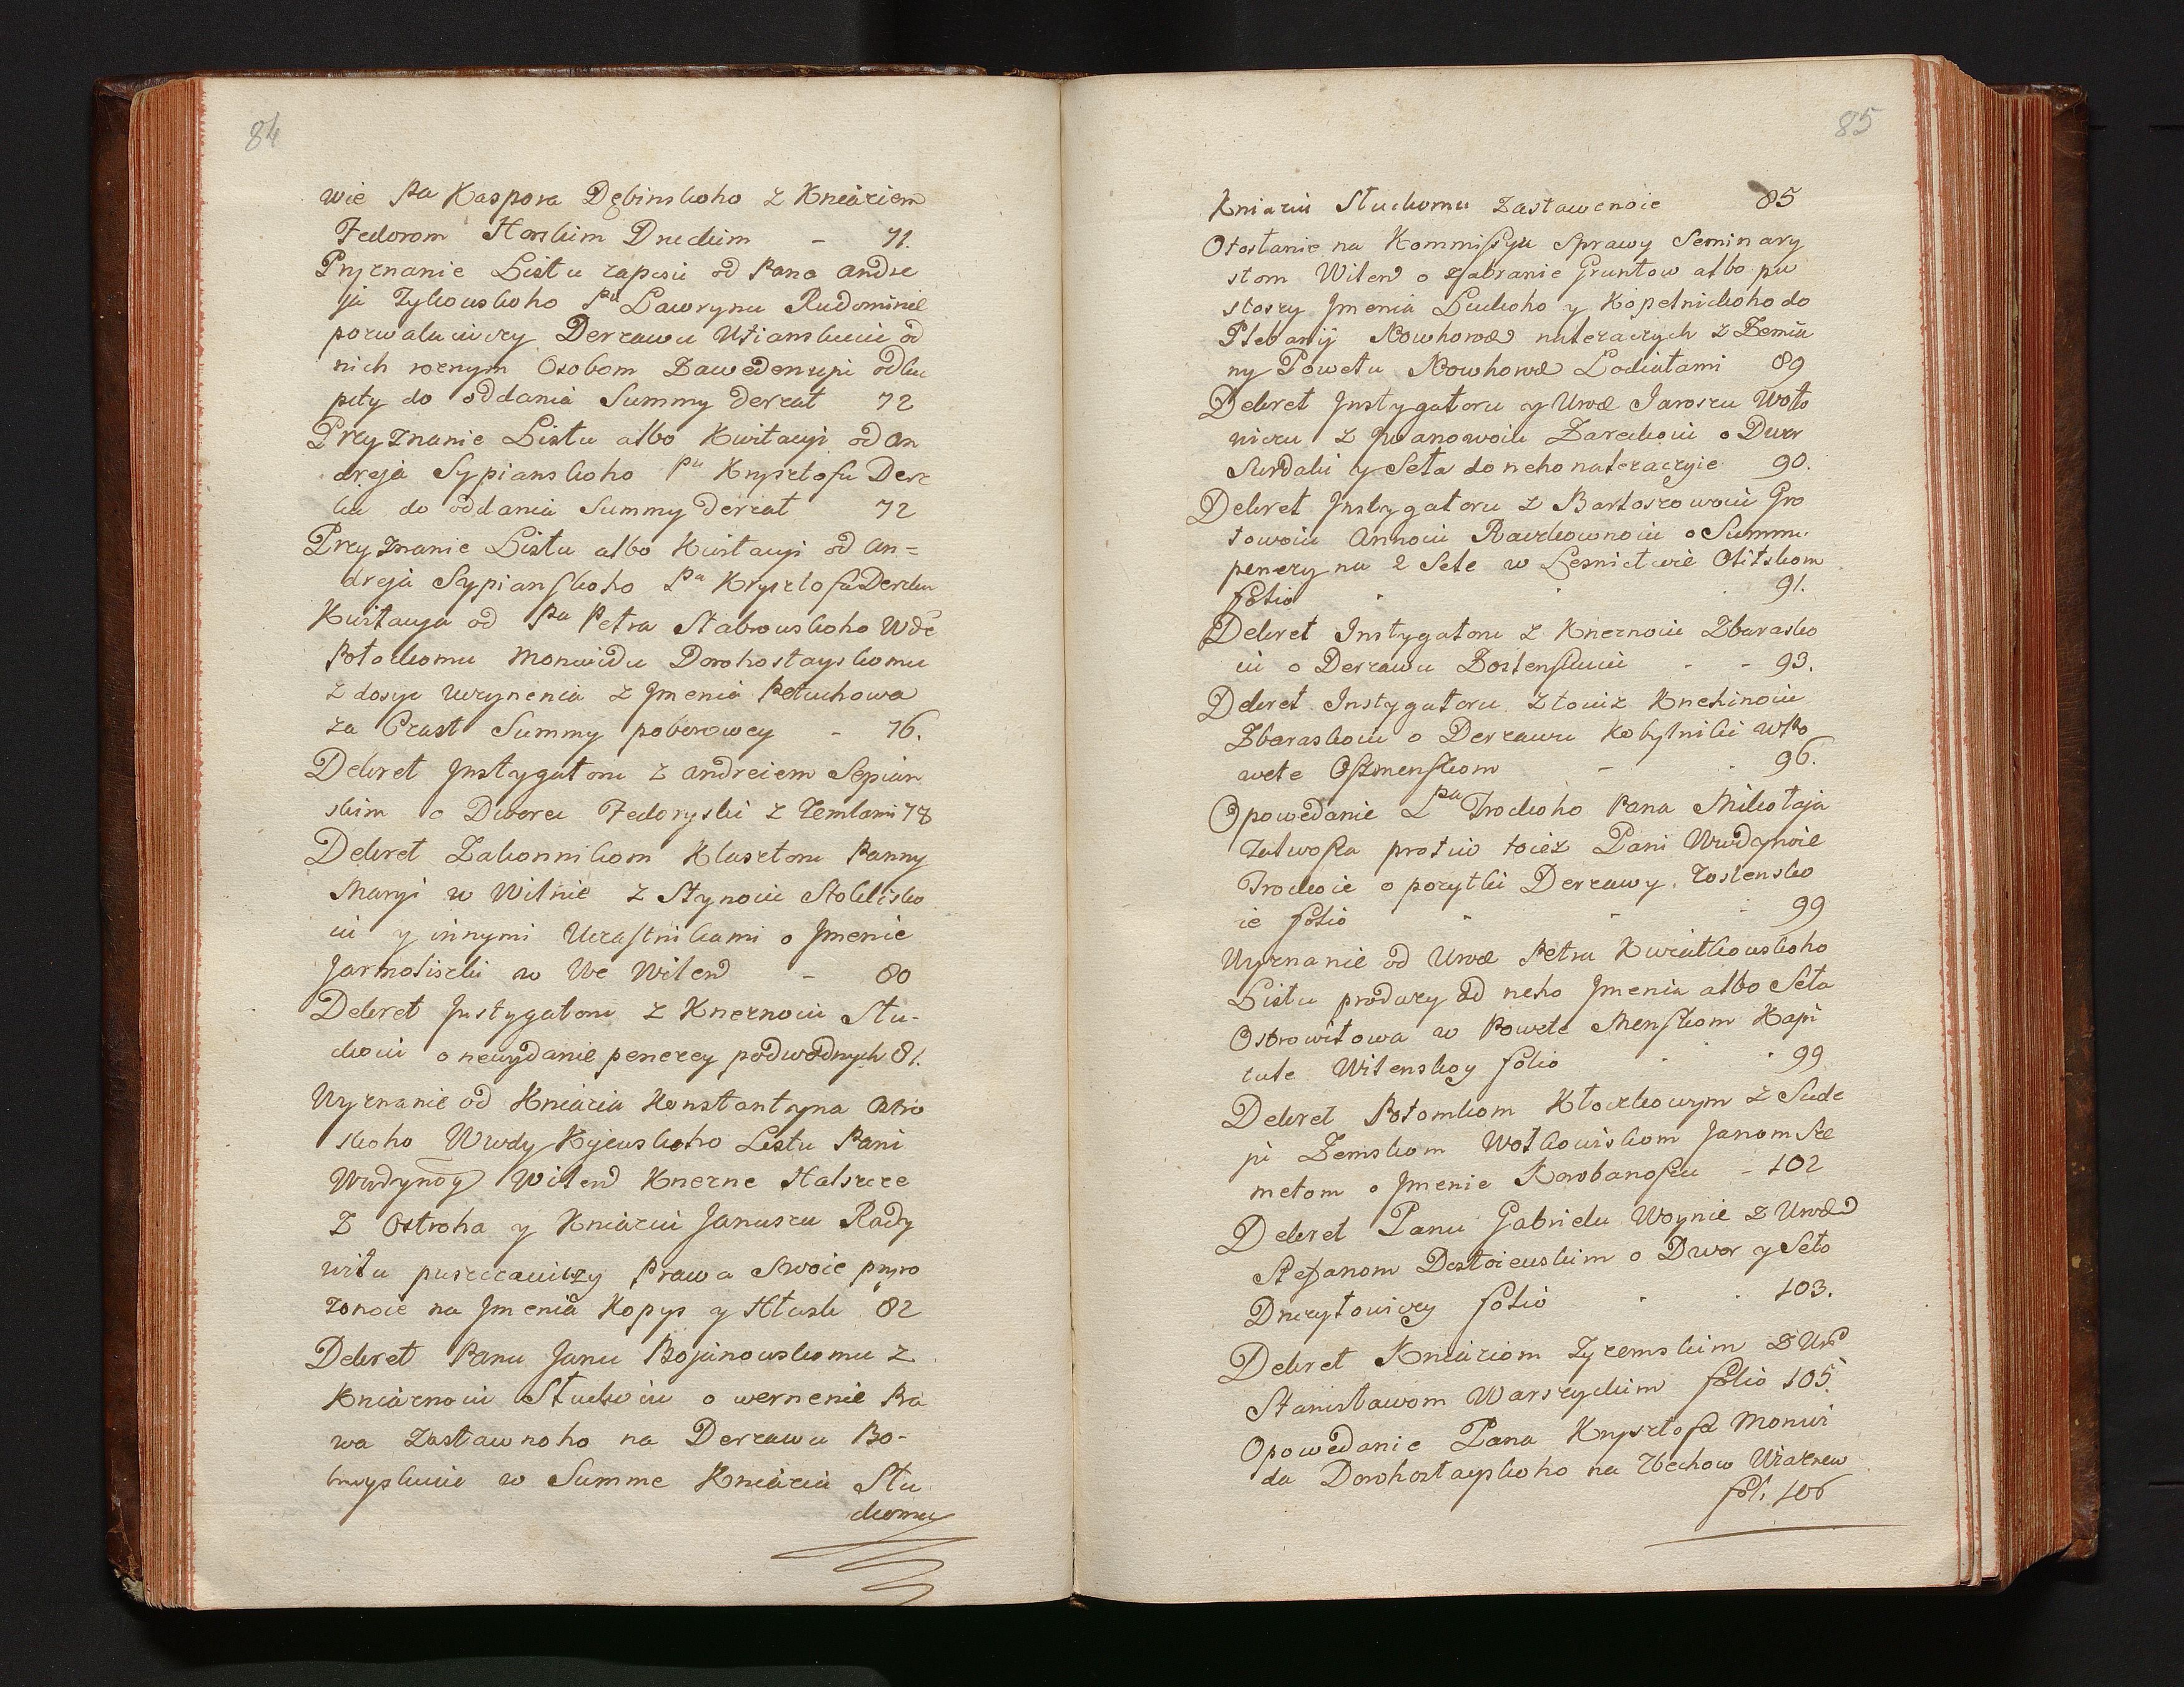 84
wie Pa Kaspora Dębinskoho z Kniaziem
Fedorom Horskim Druckim - 71.
Pryznanie Listu zapisu od Pana Andre
ja Zykowskoho Pu Lawrynu Rudominie
pozwalaiuczy Derzawu Utianskuiu od
nich roznym Osobom Zawedenuju odku
pity do oddania Summy derzat 72
Przyznanie Listu albo Kwitacyi od An
dreja Sypianskoho Pu Krysztofu Derz
ku do oddania Summy derzat 72
Przyznanie Listu albo Kwitacyi od An=
dreja Sypianskoho Pa Krysztofu Derzku
Kwitacya od Pa Petra Stabrowskoho Wde
Połockomu Monwidu Dorohostayskomu
z dosyc uczynenia z Jmenia Petuchowa
za Czast Summy poborowey - 76.
Dekret Instygatoru z Andreiem Sepian
skim o Dworec Fedoryski z Zemlami 78
Dekret Zakonnikom Klasztoru Panny
Maryi w Wilnie z Stynoiu Stokliszko
iu y innymi Uczastnikami o Jmenie
Jarmoliszki w We Wilend - 80
Dekret Instygatoru z Kneznoiu Słu-
ckoiu o newydanie penezey podwodnych 81.
Uyznanie od Kniazia Konstantyna Ostro
skoho Wwdy Kijewskoho Listu Pani
Wwdynoy Wilend Knezne Halszce
z Ostroha y Kniaziu Januszu Rady
wiłu puszczaiuczy Prawa Swoie pryro
zonoie na Jmenia Kopys y Hłusk 82
Dekret Panu Janu Bojanowskomu z
Kniaznoiu Słuckoiu o wernenie Pra
wa Zastawnoho na Derzawu Bo-
brwyskuiu w Summe Kniazia Słu
ckomu
85
Kniaziu Słuckomu Zastawenoie 85
Otosłanie na Kommissyu Sprawy Seminary
stom Wilend o zabranie Gruntow albo pu
stoszy Jmenia Luckoho y Kopelnickoho do
Plebanij Nowhorod należaczych z Zemia
ny Powetu Nowhorod Lodiatami 89
Dekret Instygatoru y Urod Jaroszu Woło
wiczu z Iwanowoiu Zareckoiu o Dwor
Surdaki y Seła do neho należaczyie 90.
Dekret Instygatoru z Bartoszowoiu Gro
towoiu Annoiu Raczkownoiu o Summu
penezy na 2 Sele w Lesnictwie Olitskom
folio 91.
Dekret Instygatoru z Kneznoiu Zbarasko
iu o Derzawu Zoslenskuiu - - 93.
Dekret Instygatoru z toiuz Knehinoiu
Zbaraskoiu o Derzawu Kobylniki w Po
wete Oszmenskom - 96.
Opowedanie Pa Trockoho Pana Mikołaja
Talwosza protiw toież Pani Wwdynoie
Trockoie o pozytki Derzawy. Zoslensko
ie folio 99
Uyznanie od Urod Petra Kwiatkowskoho
Listu prodazy od neho Jmenia albo Seła
Ostrowitowa w Powete Menskom Kapi
tule Wilenskoy folio 99
Dekret Potomkom Kłoczkowym z Sude
ju Zemskom Wołkowiskom Janom Sze
metom o Jmenie Korobanoszu - 102
Dekret Panu Gabrielu Woynie z Urod
Stefanom Dostoiewskim o Dwor y Seło
Dmuytowiczy folio 103.
Dekret Kniaziom Zyzemskim z Urod
Stanisławom Warszyckim folio 105.
Opowedanie Pana Krysztofa Monwi
da Dorohostayskoho na Zbechow Uiaznew
fol. 106